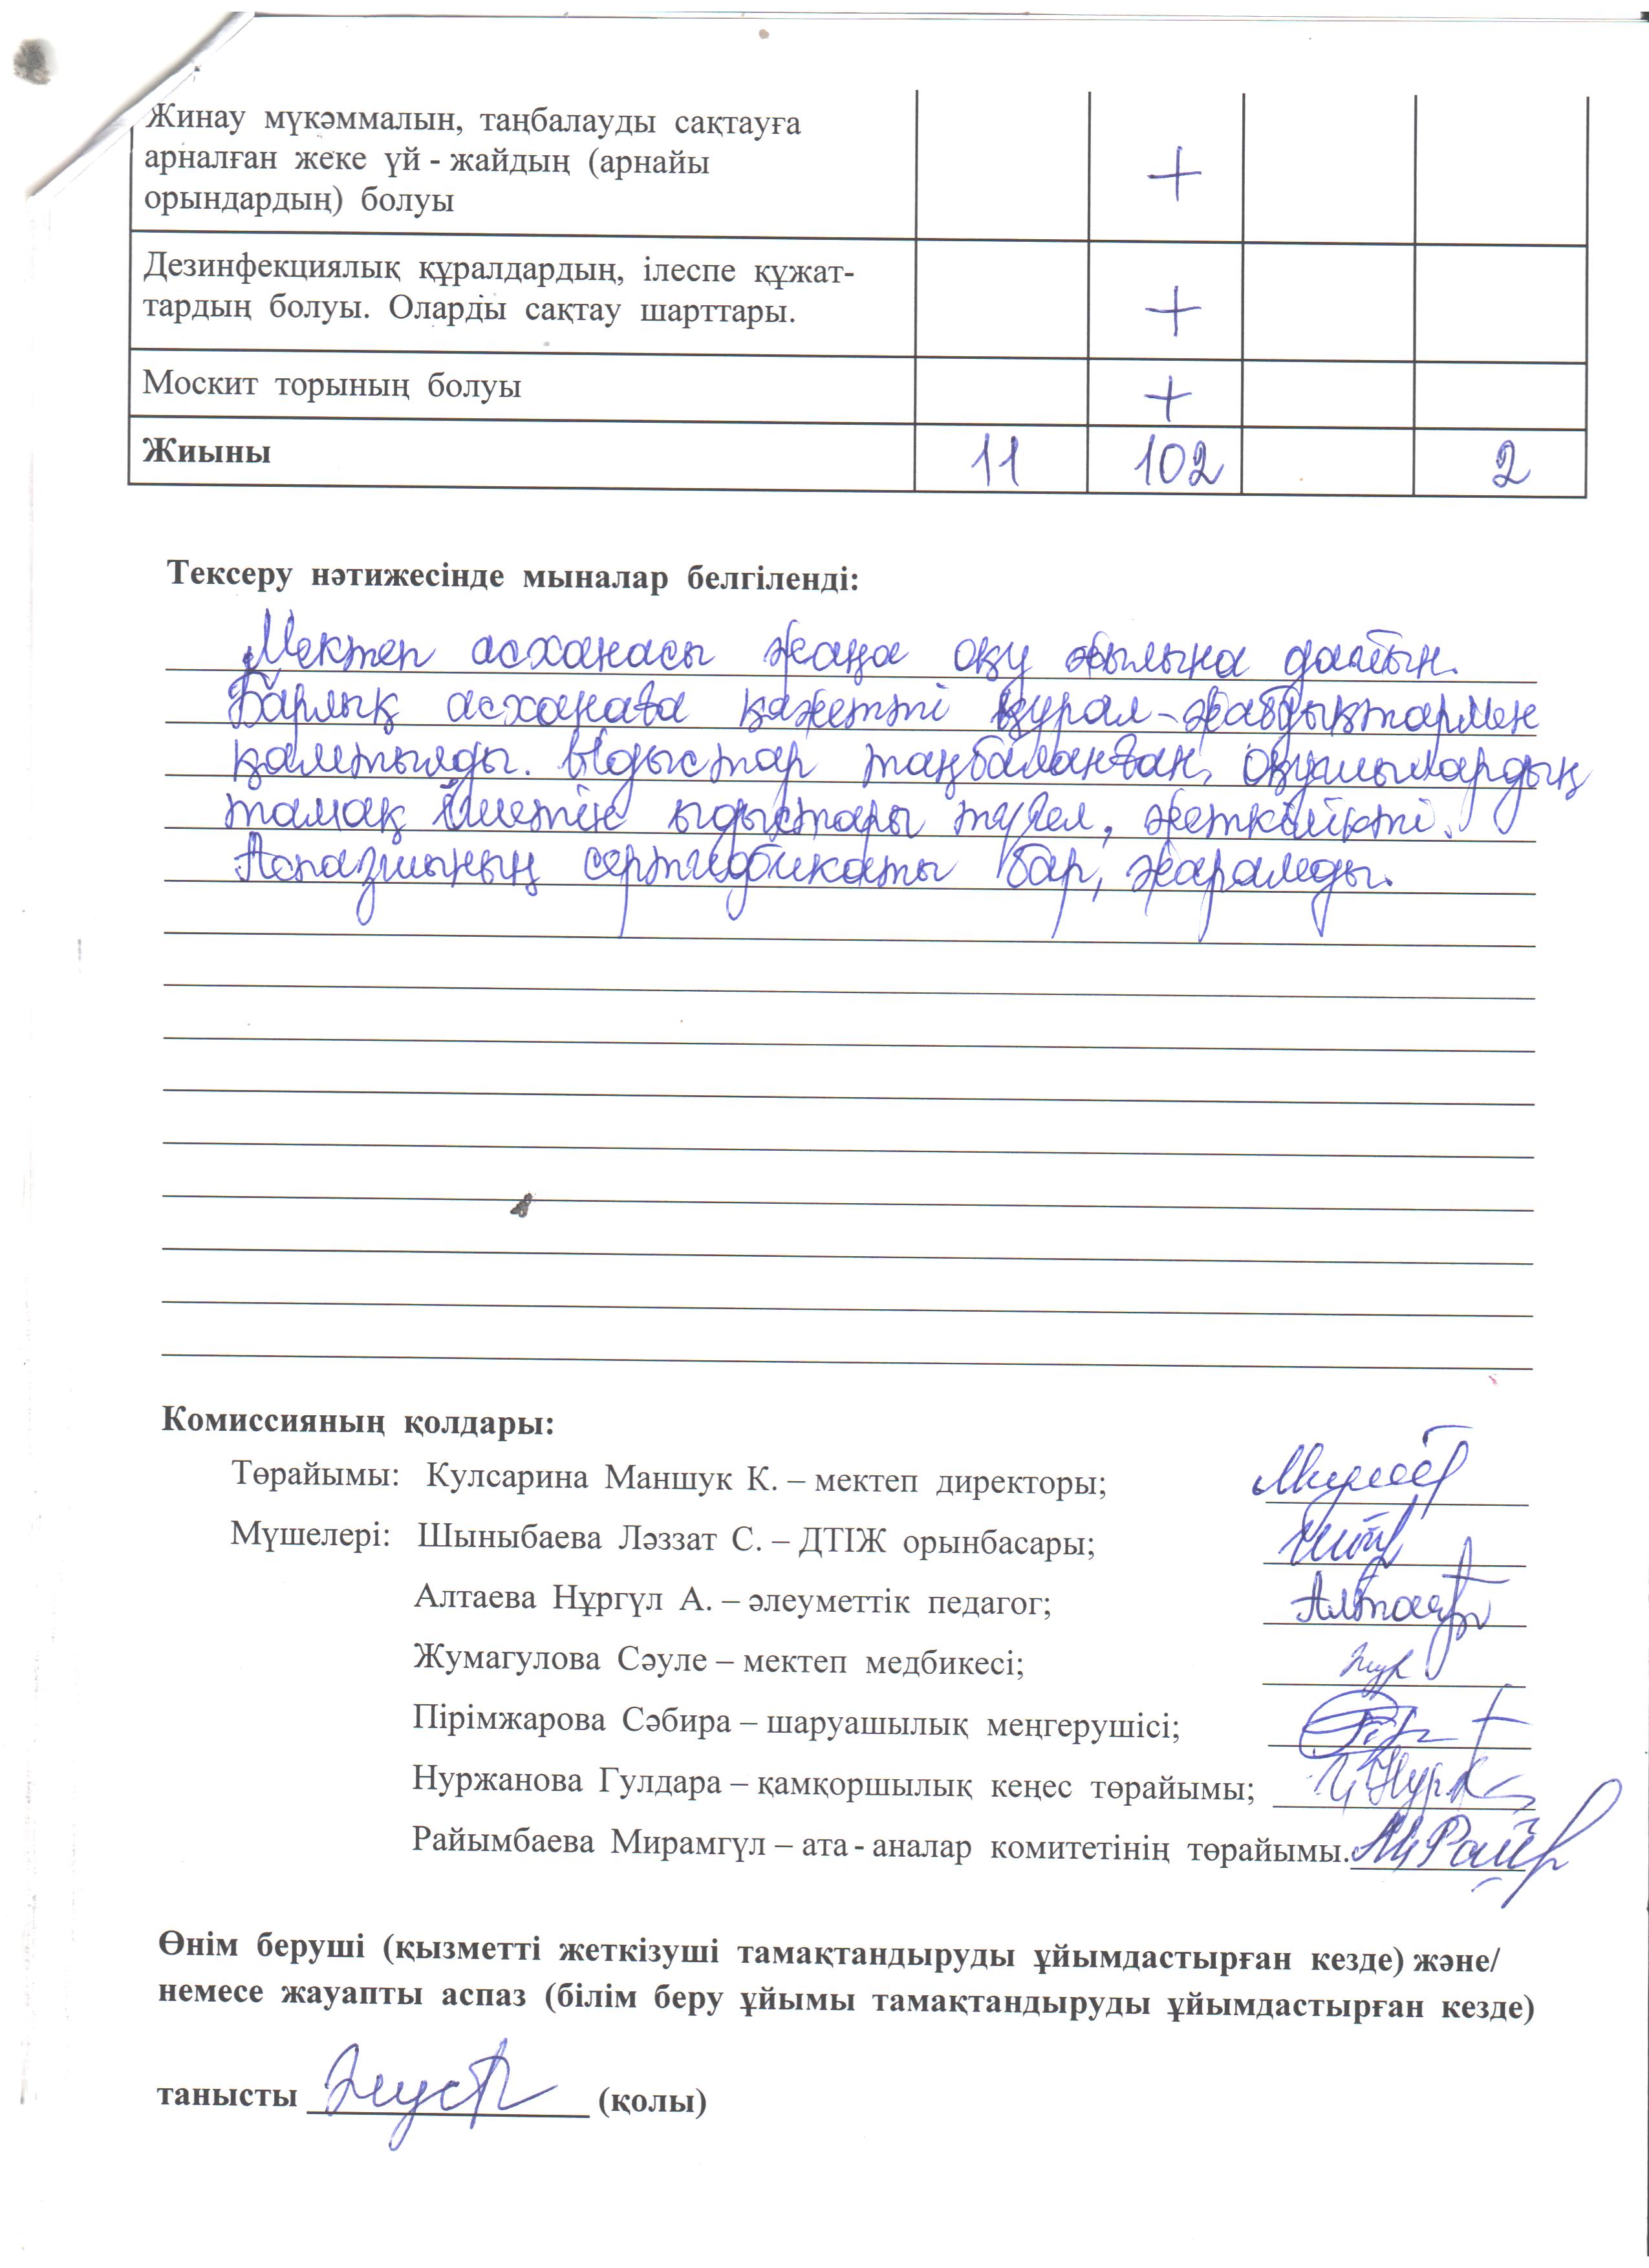 Жинау мүкәммалын, таңбалауды сақтауға
арналған жеке үй - жайдың (арнайы
орындардың) болуы
+
Дезинфекциялық құралдардың, ілеспе құжат-
тардың болуы. Оларды сақтау шарттары.
+
Москит торының болуы
+
Жиыны 11 102 2
Тексеру нәтижесінде мыналар белгіленді:
Мектеп асханасы жаңа оқу жылына дайын.
Барлық асханаға қажетті құрал-жабдықтармен
қамтылды. Ыдыстар таңбаланған, оқушылардың
тамақ ішетін ыдыстары түгел, жеткілікті.
Аспазшының сертификаты бар, жарамды.
Комиссияның қолдары:
Төрайымы: Кулсарина Маншук К. – мектеп директоры;
Мүшелері: Шыныбаева Ләззат С. – ДТІЖ орынбасары;
Алтаева Нұргүл А. – әлеуметтік педагог;
Жумагулова Сәуле – мектеп медбикесі;
Пірімжарова Сәбира – шаруашылық меңгерушісі;
Нуржанова Гулдара – қамқоршылық кеңес төрайымы;
Райымбаева Мирамгүл – ата - аналар комитетінің төрайымы.
Өнім беруші (қызметті жеткізуші тамақтандыруды ұйымдастырған кезде) және/
немесе жауапты аспаз (білім беру ұйымы тамақтандыруды ұйымдастырған кезде)
танысты (қолы)